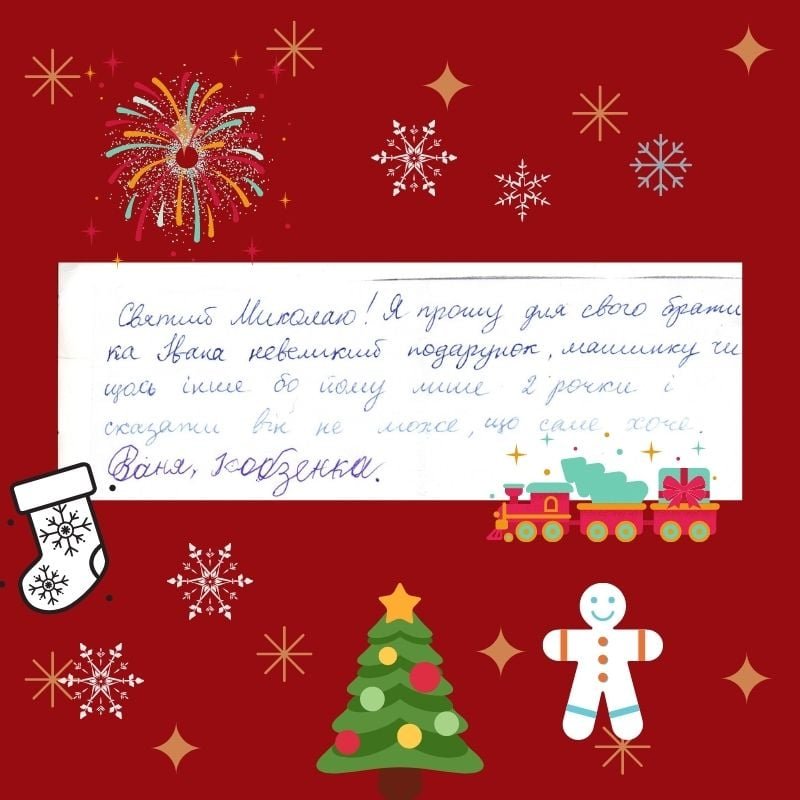 Святий Миколаю! Я прошу для свого брати
ка Івана невеликий подарунок, машинку чи
щось інше бо йому лише 2 рочки і
сказати він не може, що саме хоче.
Ваня, Кобзенка.